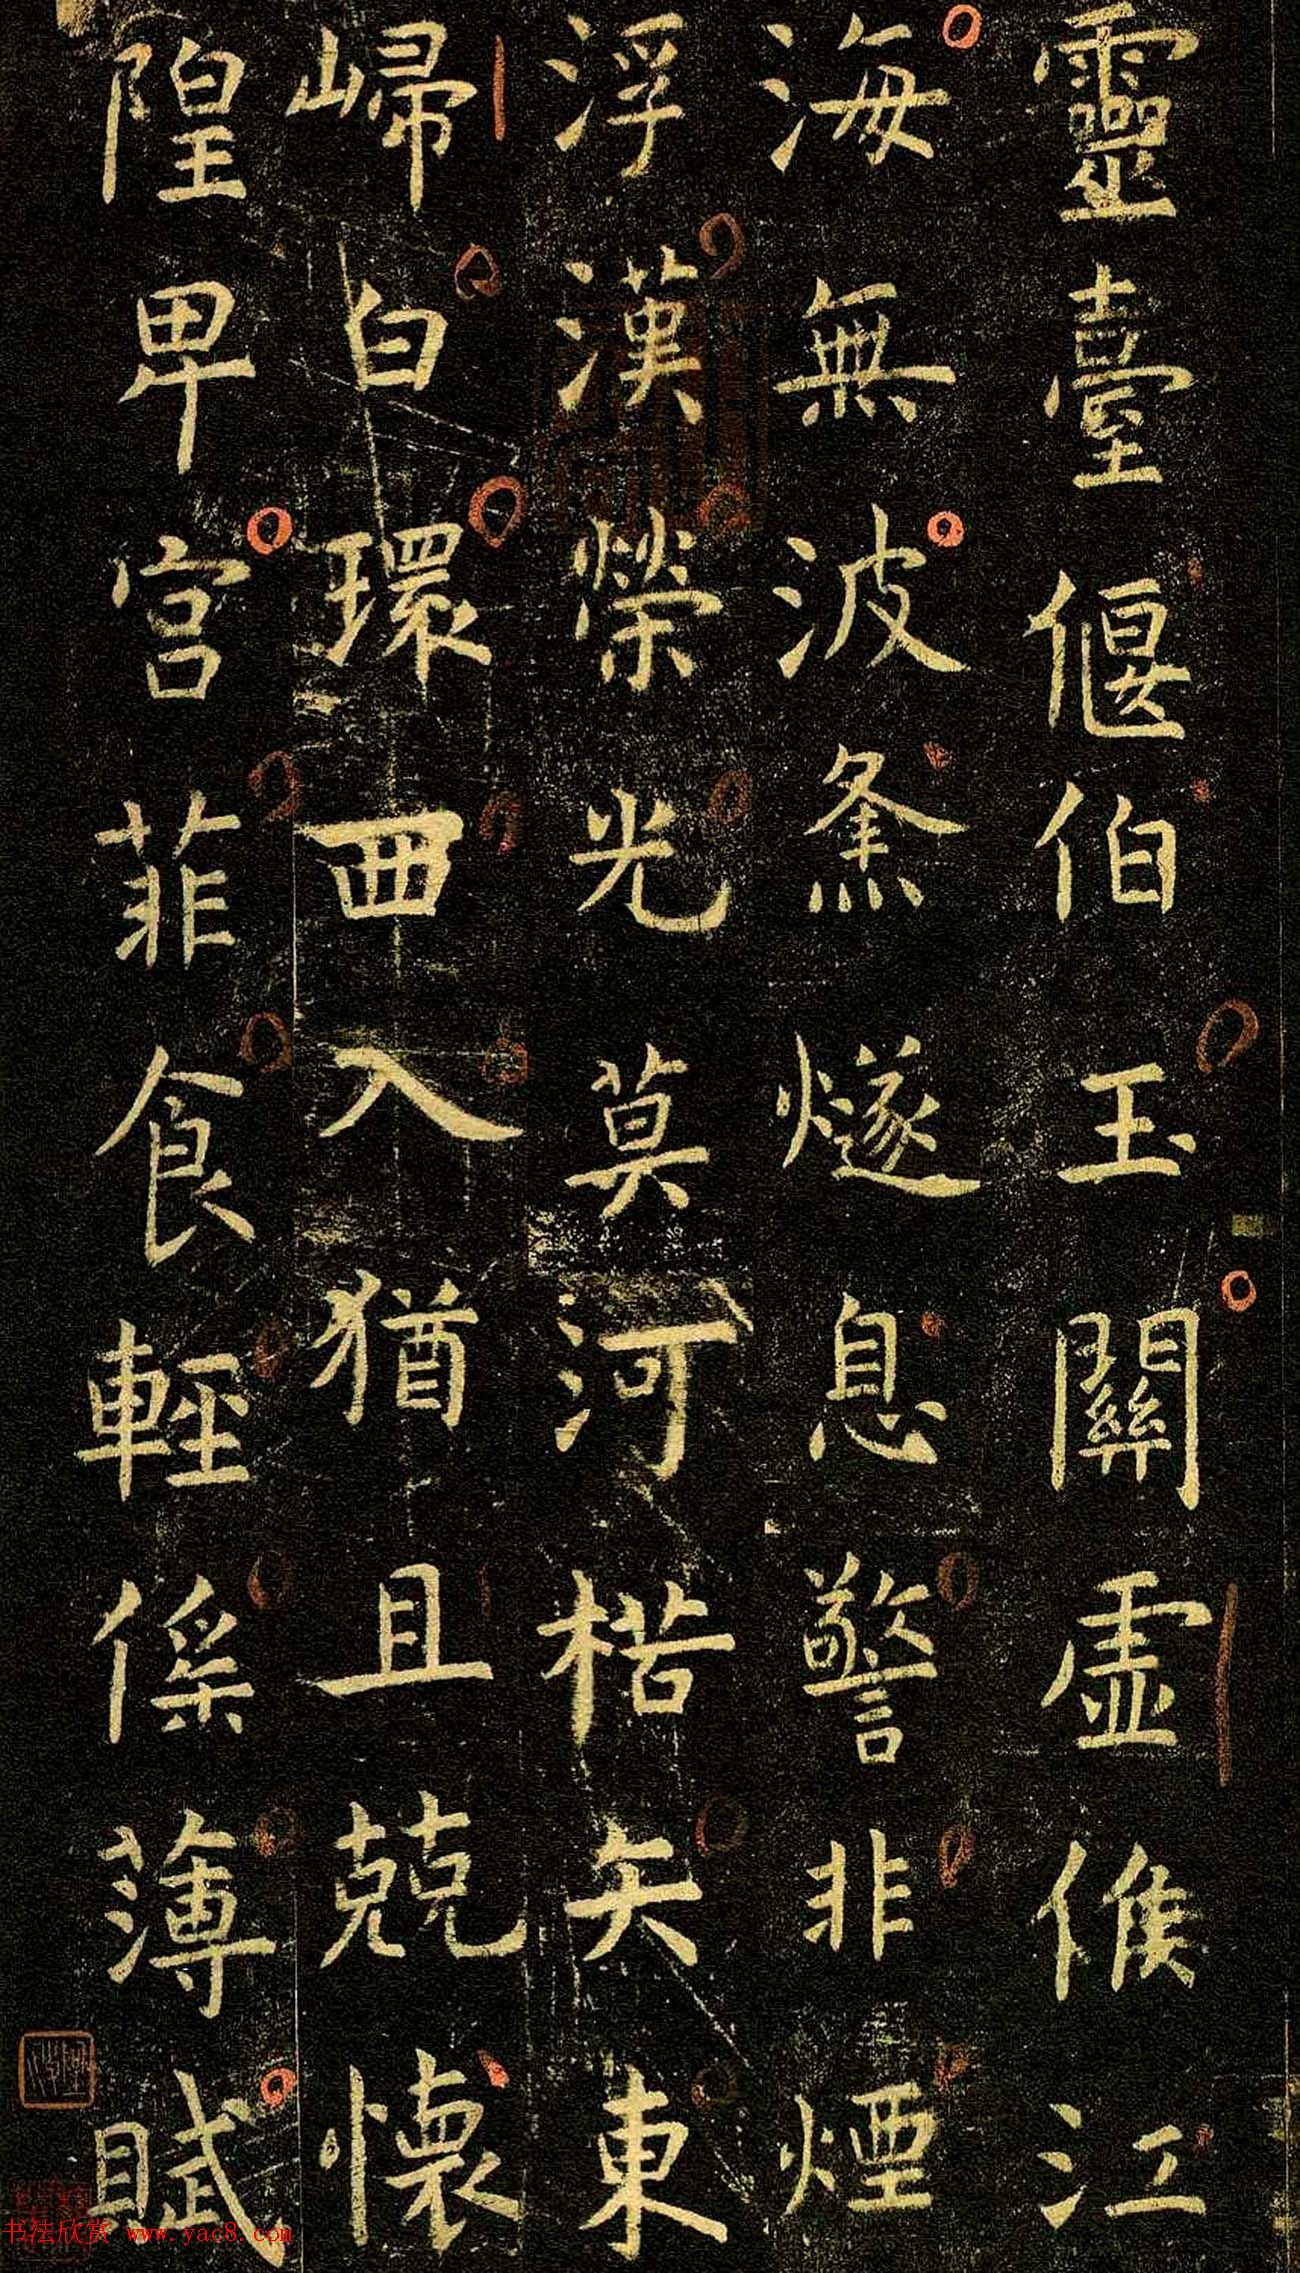 靈臺偃伯玉關虛候江
海無波烽燧息警非煙
浮漢榮光莫河楛矢東
歸白環西入猶且兢懷
隍卑宮菲食輕徭薄賦
书法欣赏 www.yac8.com